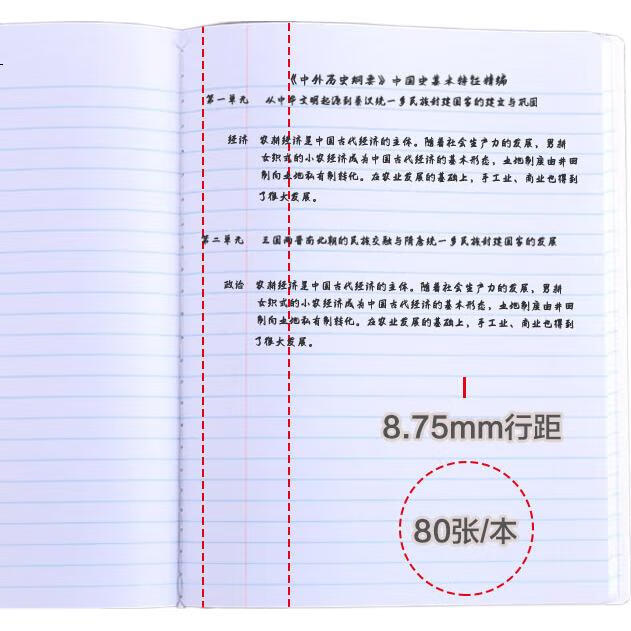 《中外历史纲要》中国史基本特征精编
第一单元 从中华文明起源到秦汉统一多民族封建国家的建立与巩固
经济 农耕经济是中国古代经济的主体。随着社会生产力的发展，男耕
女织式的小农经济成为中国古代经济的基本形态，土地制度由井田
制向土地私有制转化。在农业发展的基础上，手工业、商业也得到
了很大发展。
第二单元 三国两晋南北朝的民族交融与隋唐统一多民族封建国家的发展
政治 农耕经济是中国古代经济的主体。随着社会生产力的发展，男耕
女织式的小农经济成为中国古代经济的基本形态，土地制度由井田
制向土地私有制转化。在农业发展的基础上，手工业、商业也得到
了很大发展。
8.75mm行距
80张/本